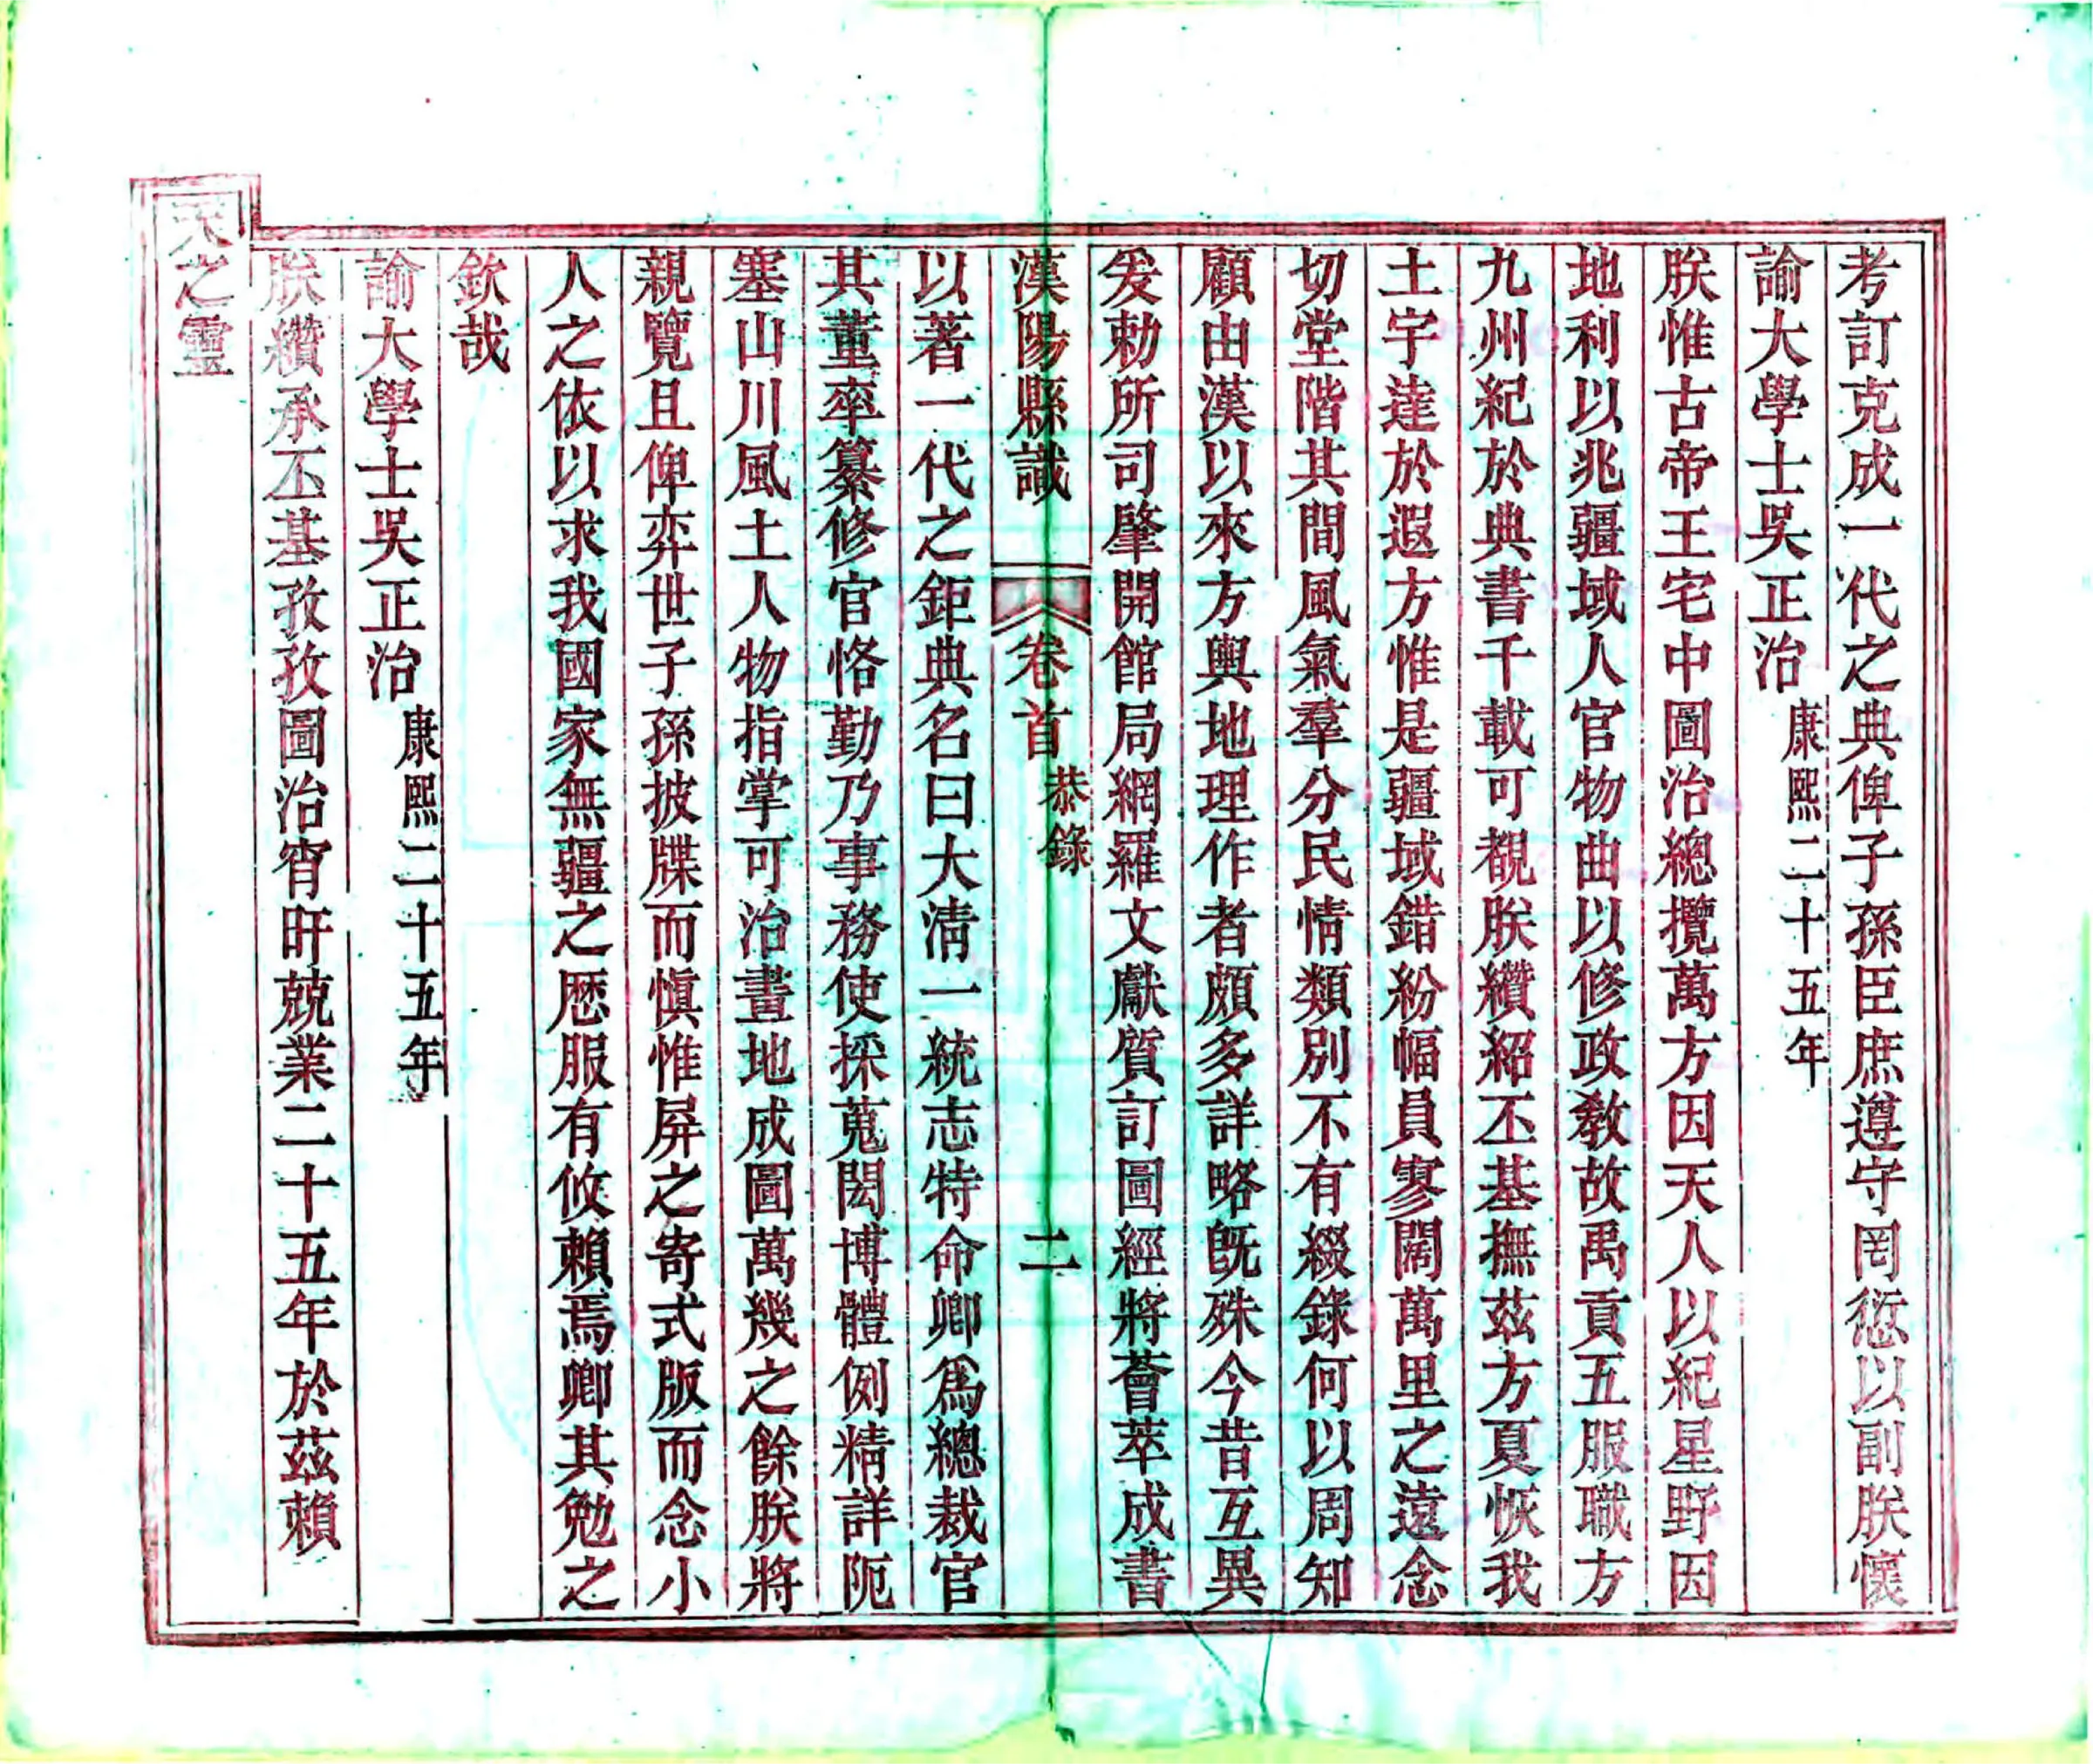 考訂克成一代之典俾子孫臣庶遵守罔愆以副朕懷
諭大學士吳正治康熙二十五年
朕惟古帝王宅中圖治總攬萬方因天人以紀星野因
地利以兆疆域人官物曲以修政敎故禹貢五服職方
九州紀於典書千載可覩朕纘紹丕基撫茲方夏恢我
土宇達於遐方惟是疆域錯紛幅員寥闊萬里之遠念
切堂階其間風氣羣分民情類別不有綴錄何以周知
顧由漢以來方輿地理作者頗多詳略旣殊今昔互異
爰勅所司肇開館局網羅文獻質訂圖經將薈萃成書
漢陽縣識 卷首 恭錄 二
以著一代之鉅典名曰大淸一統志特命卿爲總裁官
其董率纂修官恪勤乃事務使採蒐閎博體例精詳阨
塞山川風土人物指掌可治畫地成圖萬幾之餘朕將
親覽且俾弈世子孫披牒而愼惟屏之寄式版而念小
人之依以求我國家無疆之歷服有攸賴焉卿其勉之
欽哉
諭大學士吳正治康熙二十五年
朕纘承丕基孜孜圖治宵旰兢業二十五年於茲賴
天之靈